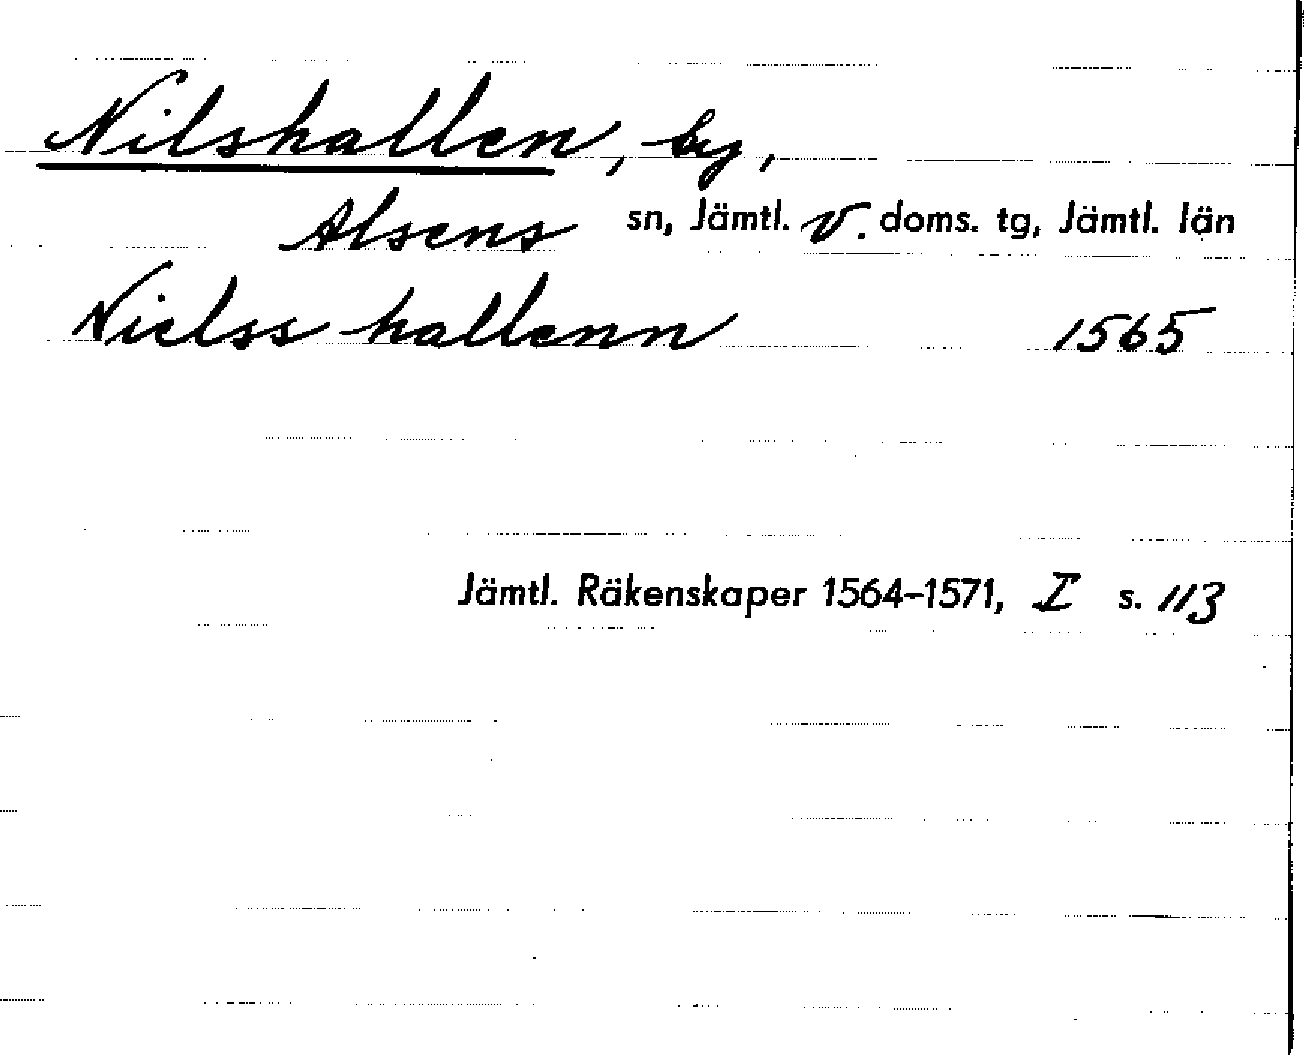 Nilshallen, by,
Alsens sn, Jämtl. V. doms. tg, Jämtl. län
Nielss hallenn 1565
Jämtl. Räkenskaper 1564-1571, I s. 113